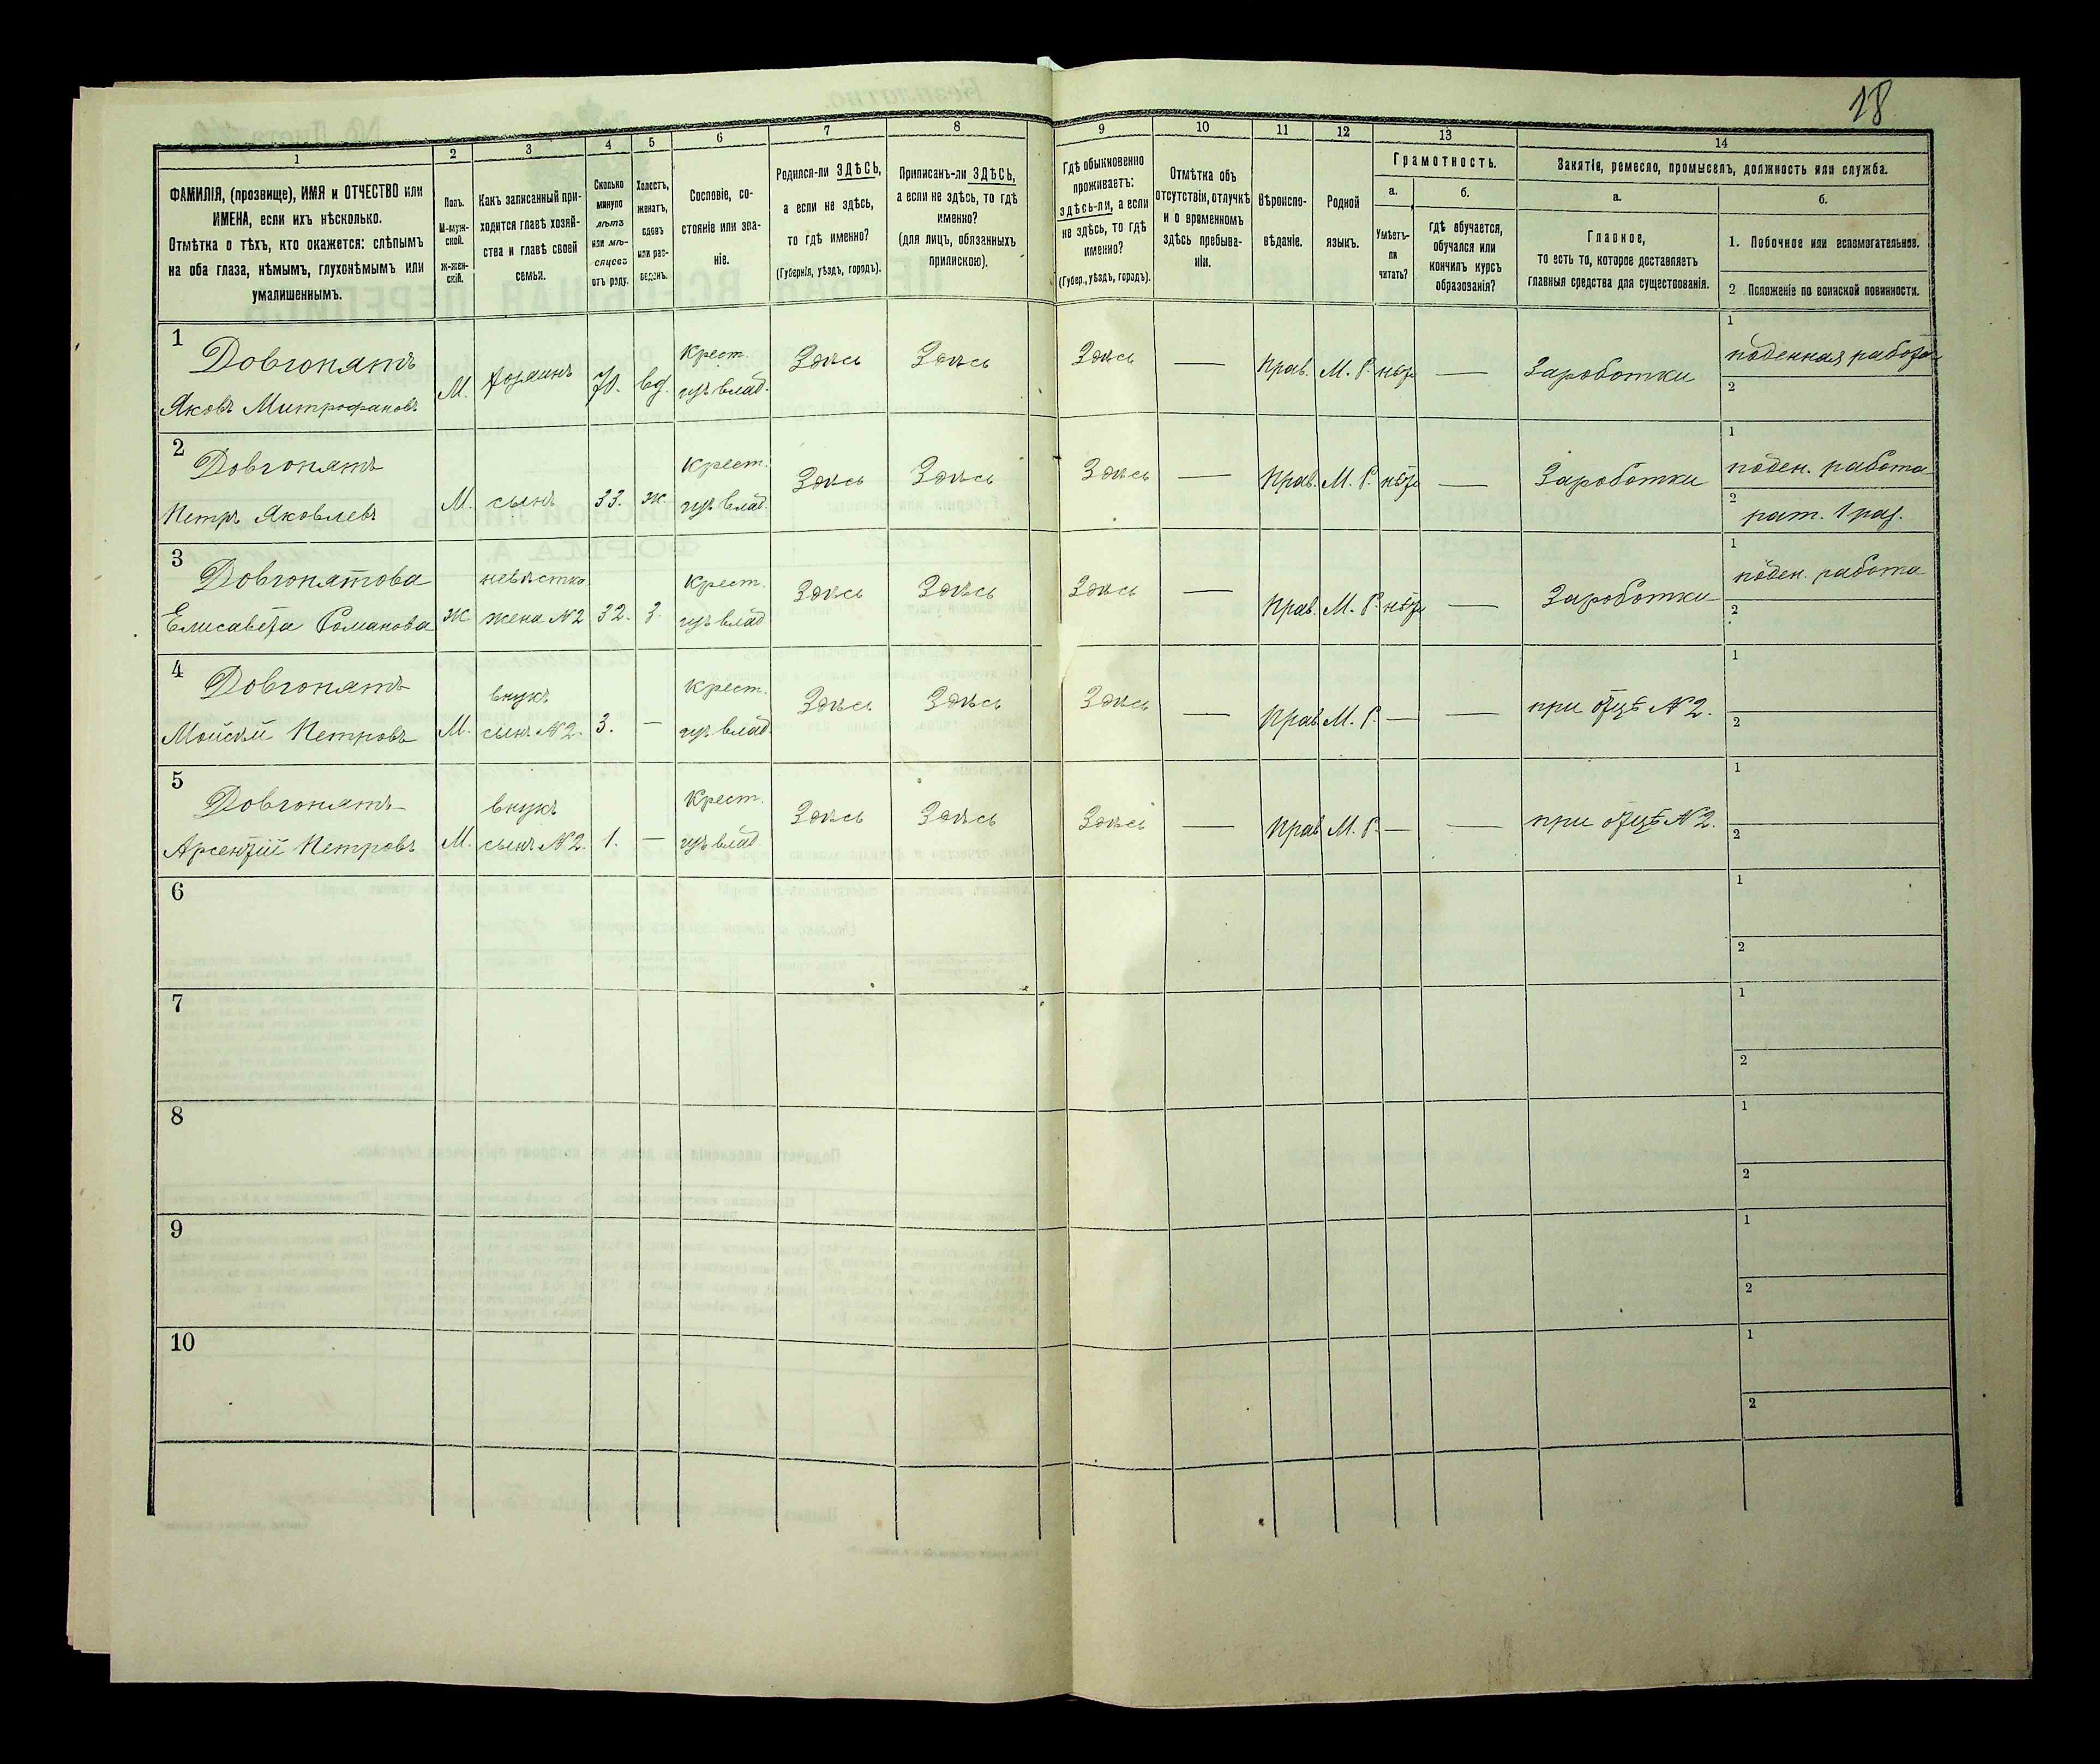 18
1
2
3
4
5
6
7
8
9
10
11
12
13
14
ФАМИЛІЯ, (прозвище), ИМЯ и ОТЧЕСТВО или
ИМЕНА, если ихъ нѣсколько.
Отмѣтка о тѣхъ, кто окажется: слѣпымъ
на оба глаза, нѣмымъ, глухонѣмымъ или
умалишеннымъ.
Полъ.
М-муж-
ской.
Ж-жен-
скій.
Какъ записанный при-
ходится главѣ хозяй-
ства и главѣ своей
семьи.
Сколько
минуло
лѣтъ
или мѣ-
сяцевъ
отъ роду.
Холостъ,
женатъ,
вдовъ
или раз-
веденъ.
Сословіе, со-
стояніе или зва-
ніе.
Родился-ли ЗДѢСЬ,
а если не здѣсь,
то гдѣ именно?
(Губернія, уѣздъ, городъ).
Приписанъ-ли ЗДѢСЬ,
а если не здѣсь, то гдѣ
именно?
(для лицъ, обязанныхъ
припискою).
Гдѣ обыкновенно
проживаетъ:
здѣсь-ли, а если
не здѣсь, то гдѣ
именно?
(Губер., уѣздъ, городъ).
Отмѣтка объ
отсутствіи, отлучкѣ
и о временномъ
здѣсь пребыва-
ніи.
Вѣроиспо-
вѣданіе.
Родной
языкъ.
Грамотность.
а.
Умѣетъ-
ли
читать?
б.
гдѣ обучается,
обучался или
кончилъ курсъ
образованія?
Занятіе, ремесло, промыселъ, должность или служба.
а.
Главное,
то есть то, которое доставляетъ
главныя средства для существованія.
б.
1. Побочное или вспомогательное.
2 Положеніе по воинской повинности.
1 Довгопятъ
Яковъ Митрофановъ М. хозяинъ 70. вд. Крест. изъ влад. Здѣсь Здѣсь Здѣсь — Прав. М. Р. нѣтъ — Зароботки 1 поденная работа
2
2 Довгопятъ
Петръ Яковлевъ М. сынъ 33. ж. Крест. изъ влад. Здѣсь Здѣсь Здѣсь — Прав. М. Р. нѣтъ — Зароботки 1 поден. работа
2 рат. 1 раз.
3 Довгопятова
Елисавета Романова Ж невѣстка жена №2 32. З. Крест. изъ влад Здѣсь Здѣсь Здѣсь — Прав. М. Р. нѣтъ — Зароботки 1 поден. работа
2
4 Довгопятъ
Мойсѣй Петровъ М. внукъ сынъ №2. 3. — Крест. изъ влад. Здѣсь Здѣсь Здѣсь — Прав. М. Р. — — при отцѣ №2. 1
2
5 Довгопятъ
Арсентій Петровъ М. внукъ сынъ №2. 1. — Крест. изъ влад Здѣсь Здѣсь Здѣсь — Прав. М. Р. — — при отцѣ №2. 1
2
6 1
2
7 1
2
8 1
2
9 1
2
10 1
2